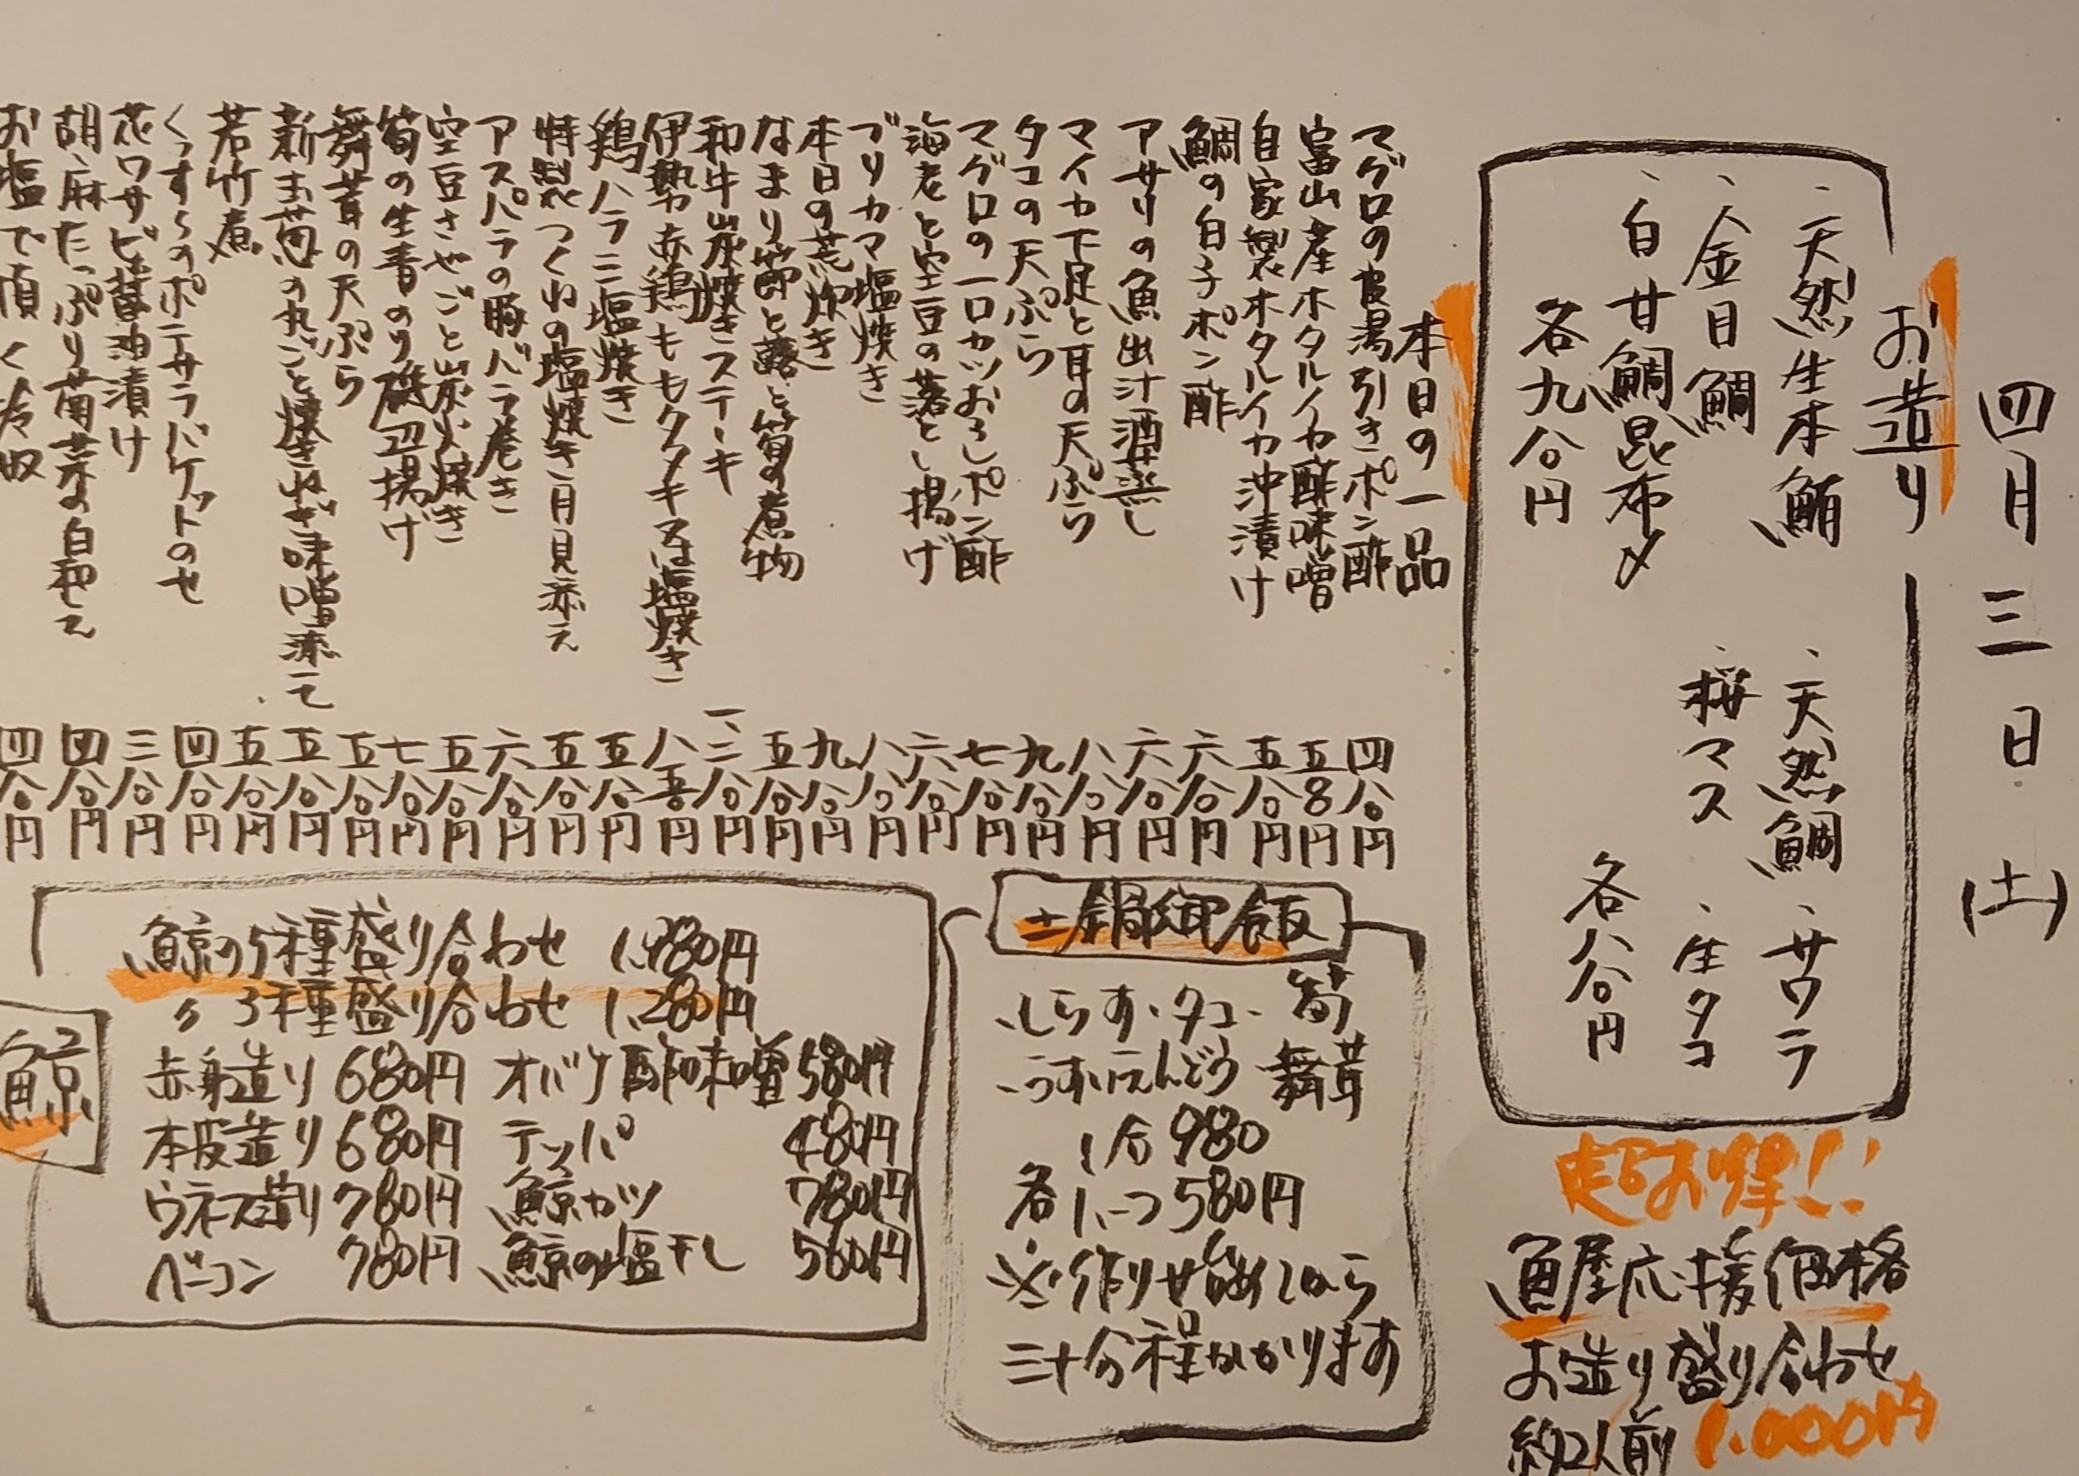 四月三日(土)
お造り
、天然生本鮪
、金目鯛
、白甘鯛昆布〆
各九〇〇円
、天然鯛、サワラ
、桜マス、生タコ
各八〇〇円
超お得!!
魚屋応援価格
お造り盛り合わせ
約2人前 1.000円
本日の一品
マグロの皮湯引きポン酢 四八〇円
富山産ホタルイカ酢味噌 五八〇円
自家製ホタルイカ沖漬け 五八〇円
鯛の白子ポン酢 六八〇円
アサリの魚出汁酒蒸し 六八〇円
マイカ下足と耳の天ぷら 八八〇円
タコの天ぷら 九八〇円
マグロの一口カツおろしポン酢 七八〇円
海老と空豆の落とし揚げ 六八〇円
ブリカマ塩焼き 八八〇円
本日の荒炊き 九八〇円
なまり節と蕗と筍の煮物 五八〇円
和牛炭焼きステーキ 一、二八〇円
伊勢赤鶏ももタタキ又は塩焼き 八八〇円
鶏ハラミ塩焼き 五八〇円
特製つくねの塩焼き月見添え 五八〇円
アスパラの豚バラ巻き 六八〇円
空豆さやごと炭火焼き 五八〇円
筍の生青のり磯辺揚げ 七八〇円
舞茸の天ぷら 五八〇円
新玉葱の丸ごと焼きねぎ味噌添えて 五八〇円
若竹煮 五八〇円
くっすぅのポテサラバケットのせ 四八〇円
花ワサビ醤油漬け 三八〇円
胡麻たっぷり菊菜の白和え 四八〇円
お塩で頂く冷奴 四八〇円
土鍋御飯
、しらす、タコ、筍
、うすいえんどう 舞茸
1合 980
各 1、二つ 580円
※作り始めてから
三十分程かかります
鯨
鯨の5種盛り合わせ 1.980円
〃 3種盛り合わせ 1.280円
赤身造り 680円 オバケ酢味噌 580円
本皮造り 680円 テッパ 480円
ウネス造り 780円 鯨カツ 780円
ベーコン 780円 鯨の塩干し 560円